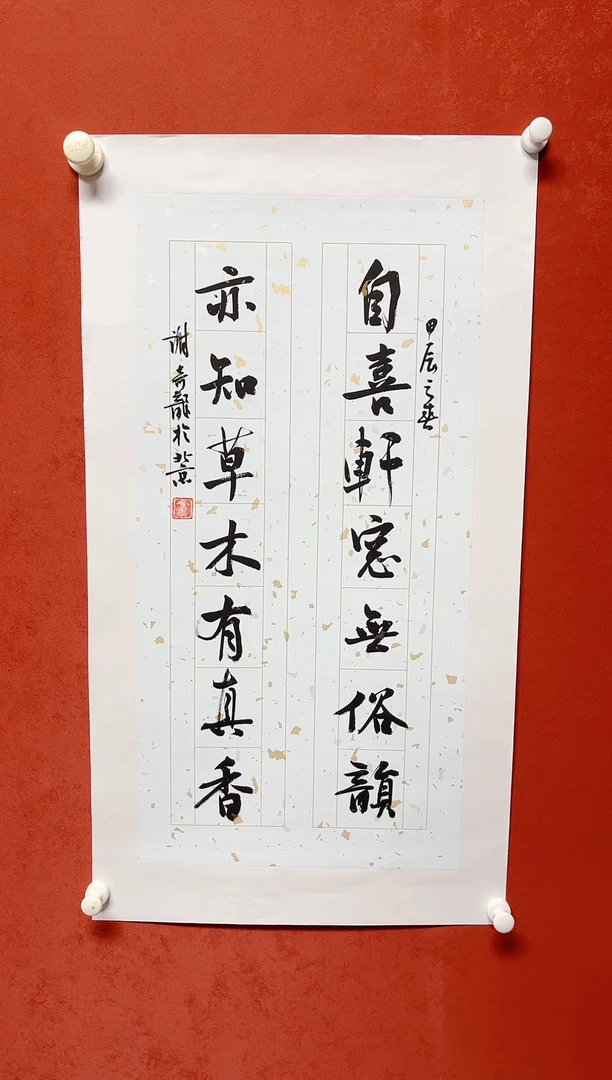 甲辰之春
自喜軒窓無俗韻
亦知草木有真香
謝奇龍於北京